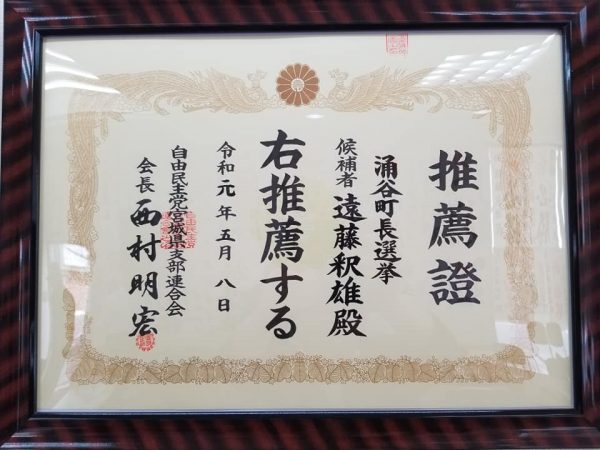 推薦證
涌谷町長選挙
候補者 遠藤釈雄殿
右推薦する
令和元年五月八日
自由民主党宮城県支部連合会
会長 西村明宏